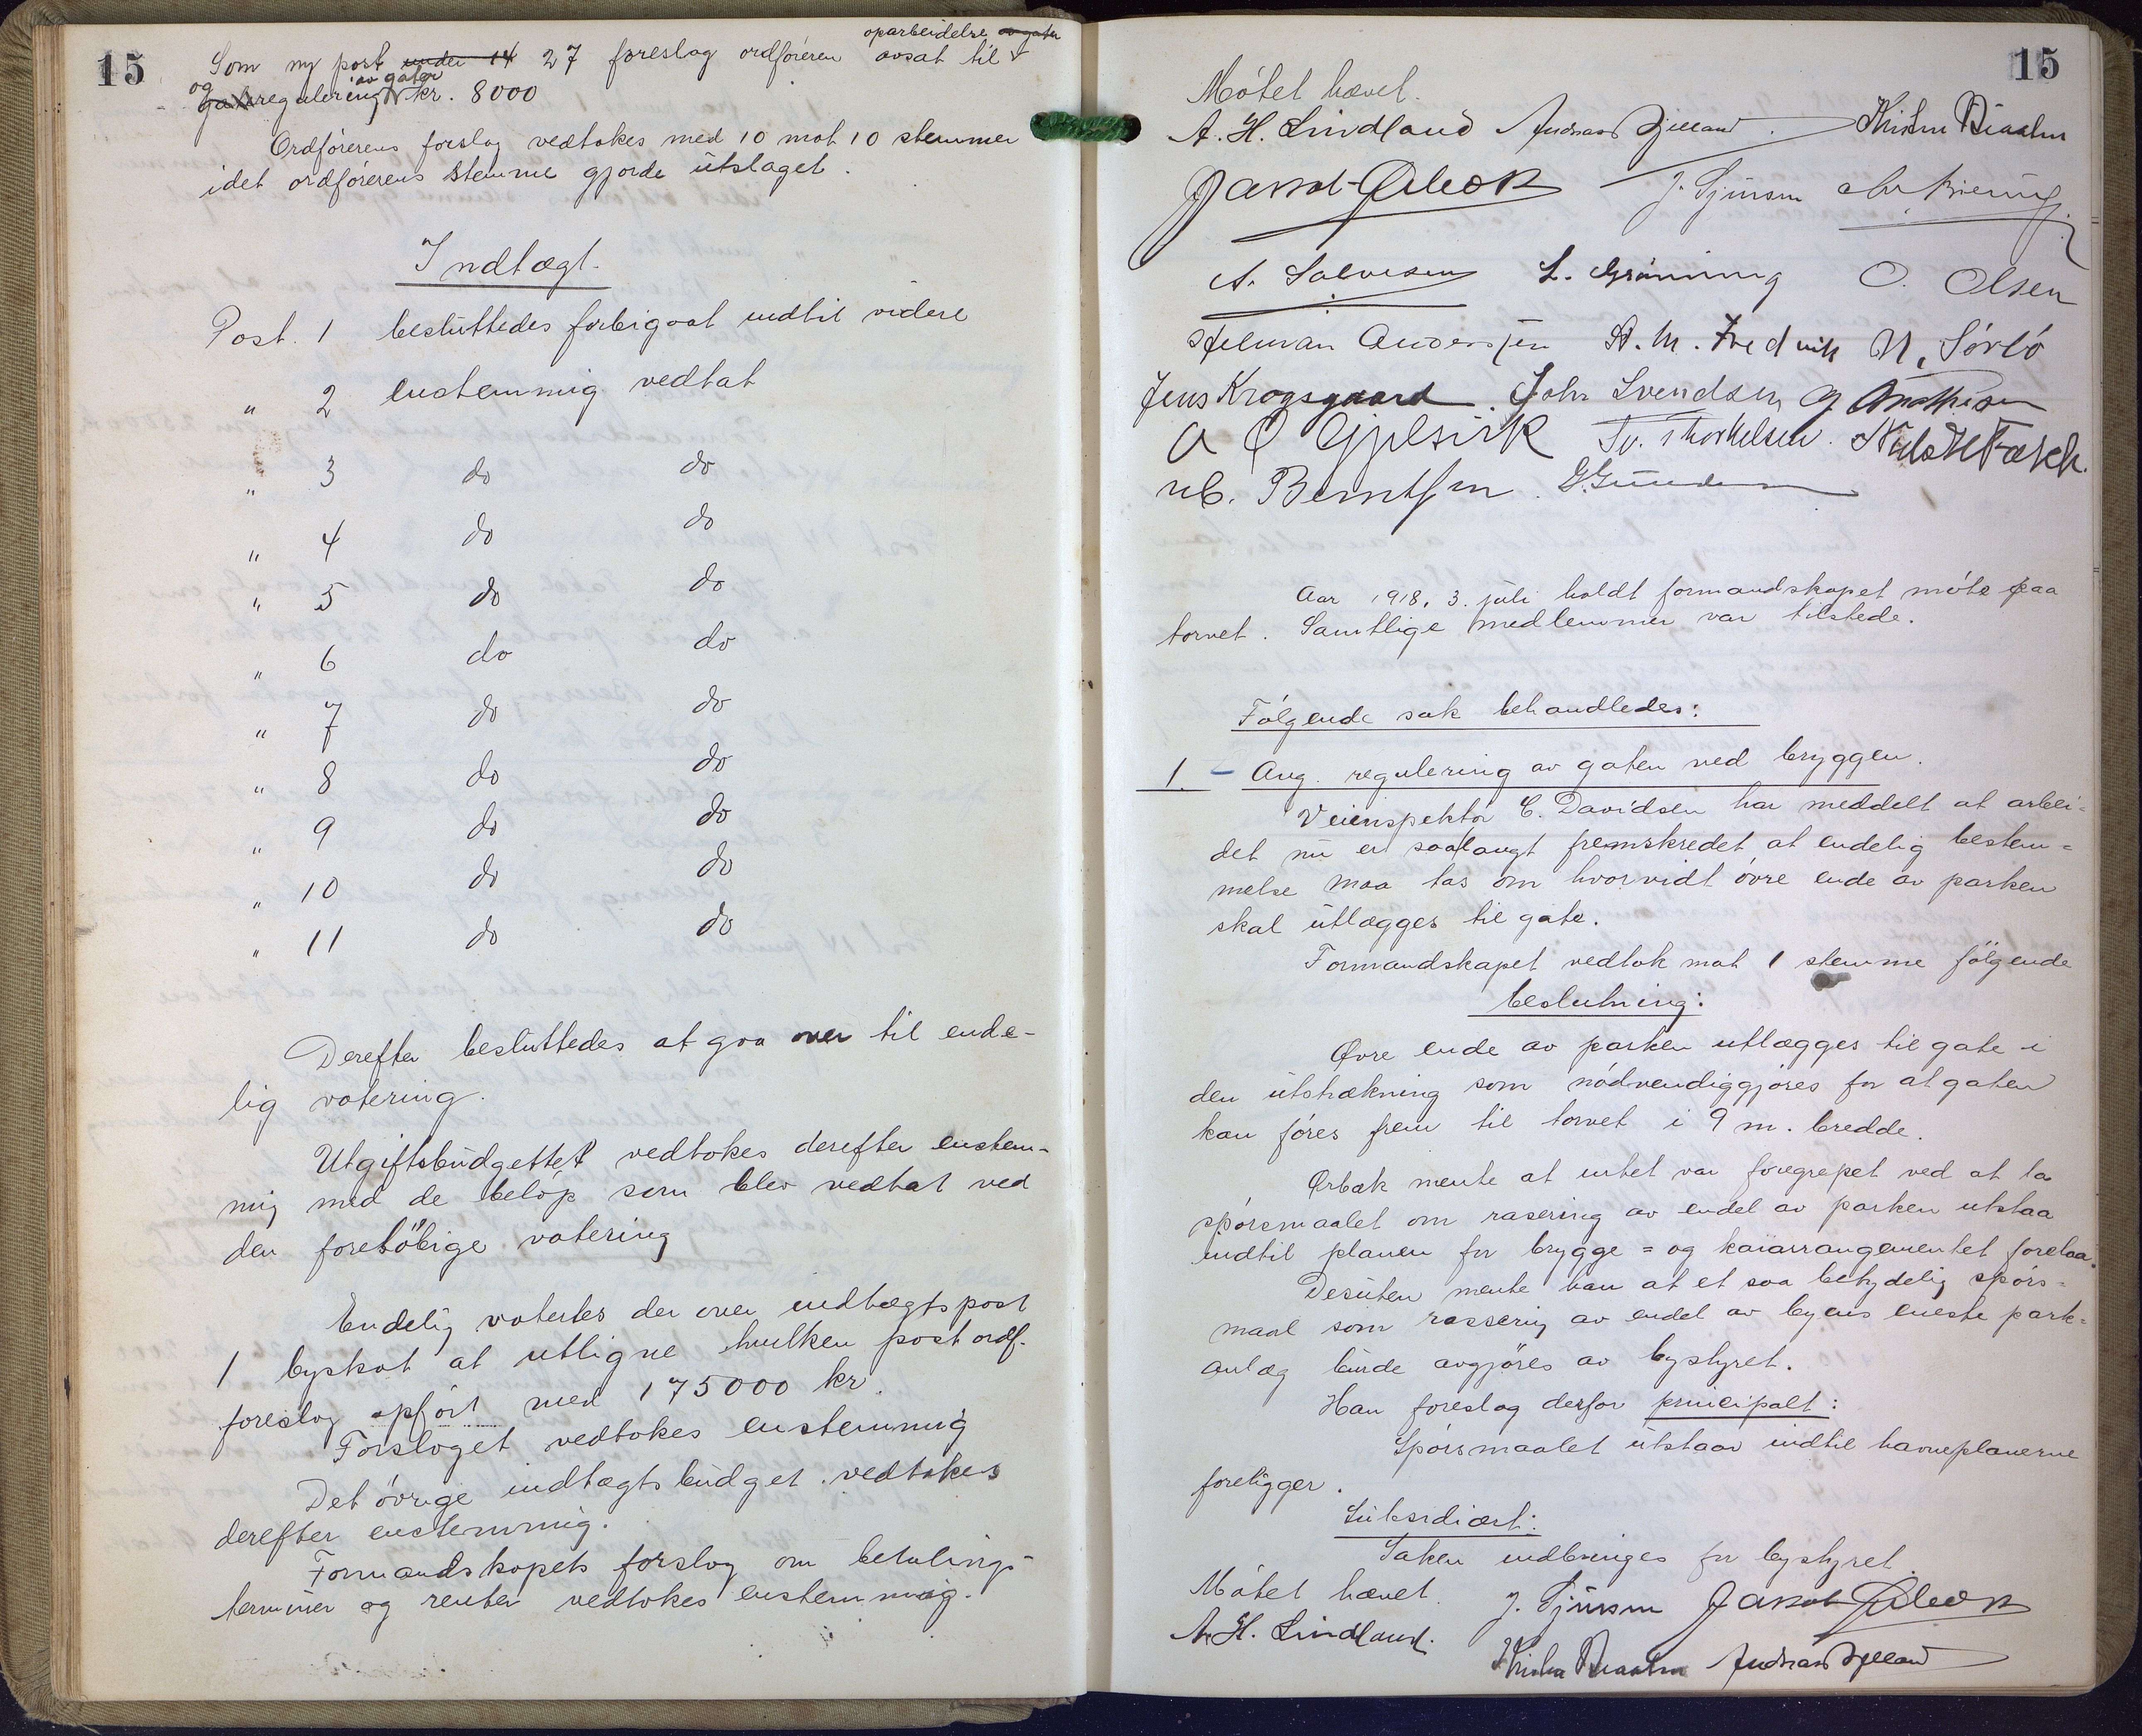 15
oparbeidelse av gater
Som ny post under 14 27 foreslog ordføreren avsat til
og av gater
regulering kr. 8000
Ordførerens forslag vedtokes med 10 mot 10 stemmer
idet ordførerens stemme gjorde utslaget.
Indtægt.
Post. 1 besluttedes forbigaat indtil videre
" 2 enstemmig vedtat
" 3 do do
" 4 do do
" 5 do do
" 6 do do
" 7 do do
" 8 do do
" 9 do do
" 10 do do
" 11 do do
Derefter besluttedes at gaa over til ende-
lig votering.
Utgiftsbudgettet vedtokes derefter enstem-
mig med de beløp som blev vedtat ved
den foreløbige votering
Endelig votertes der over indtægtspost
1 byskat at utligne hvilken post ordf.
foreslog opført med 175000 kr.
Forslaget vedtokes enstemmig
Det øvrige indtægtsbudget vedtokes
derefter enstemmig.
Formandskapets forslag om betalings-
terminer og renter vedtokes enstemmig.
15
Møtet hævet.
A. H. Lindland Andreas
J. Sjursen
A. Salvesen L. Grønning O. Olsen
Andersen N. Sørlø
Jens Krogsgaard. John Svendsen
A O Gjelsvik Torkelsen.
Berntsen.
Aar 1918, 3. juli holdt formandskapet møte paa
torvet. Samtlige medlemmer var tilstede.
Følgende sak behandledes:
1. Ang. regulering av gaten ved bryggen.
Veiinspektør C. Davidsen har meddelt at arbei-
det nu er saalangt fremskredet at endelig bestem=
melse maa tas om hvorvidt øvre ende av parken
skal utlægges til gate.
Formandskapet vedtok mot 1 stemme følgende
beslutning:
Øvre ende av parken utlægges til gate i
den utstrækning som nødvendiggjøres for at gaten
kan føres frem til torvet i 9 m. bredde.
Ørbæk mente at intet var foregrepet ved at la
spørsmaalet om rasering av endel av parken utstaa
indtil planen for brygge= og kaiarrangementet forelaa.
Desuten mente han at et saa betydelig spørs=
maal som rassering av endel av byens eneste park=
anlæg burde avgjøres av bystyret.
Han foreslog derfor principalt:
Spørsmaalet utstaar indtil havneplanerne
foreligger.
Subsidiært:
Saken indbringes for bystyret
Møtet hævet. J. Sjursen
A. H. Lindland. Andreas